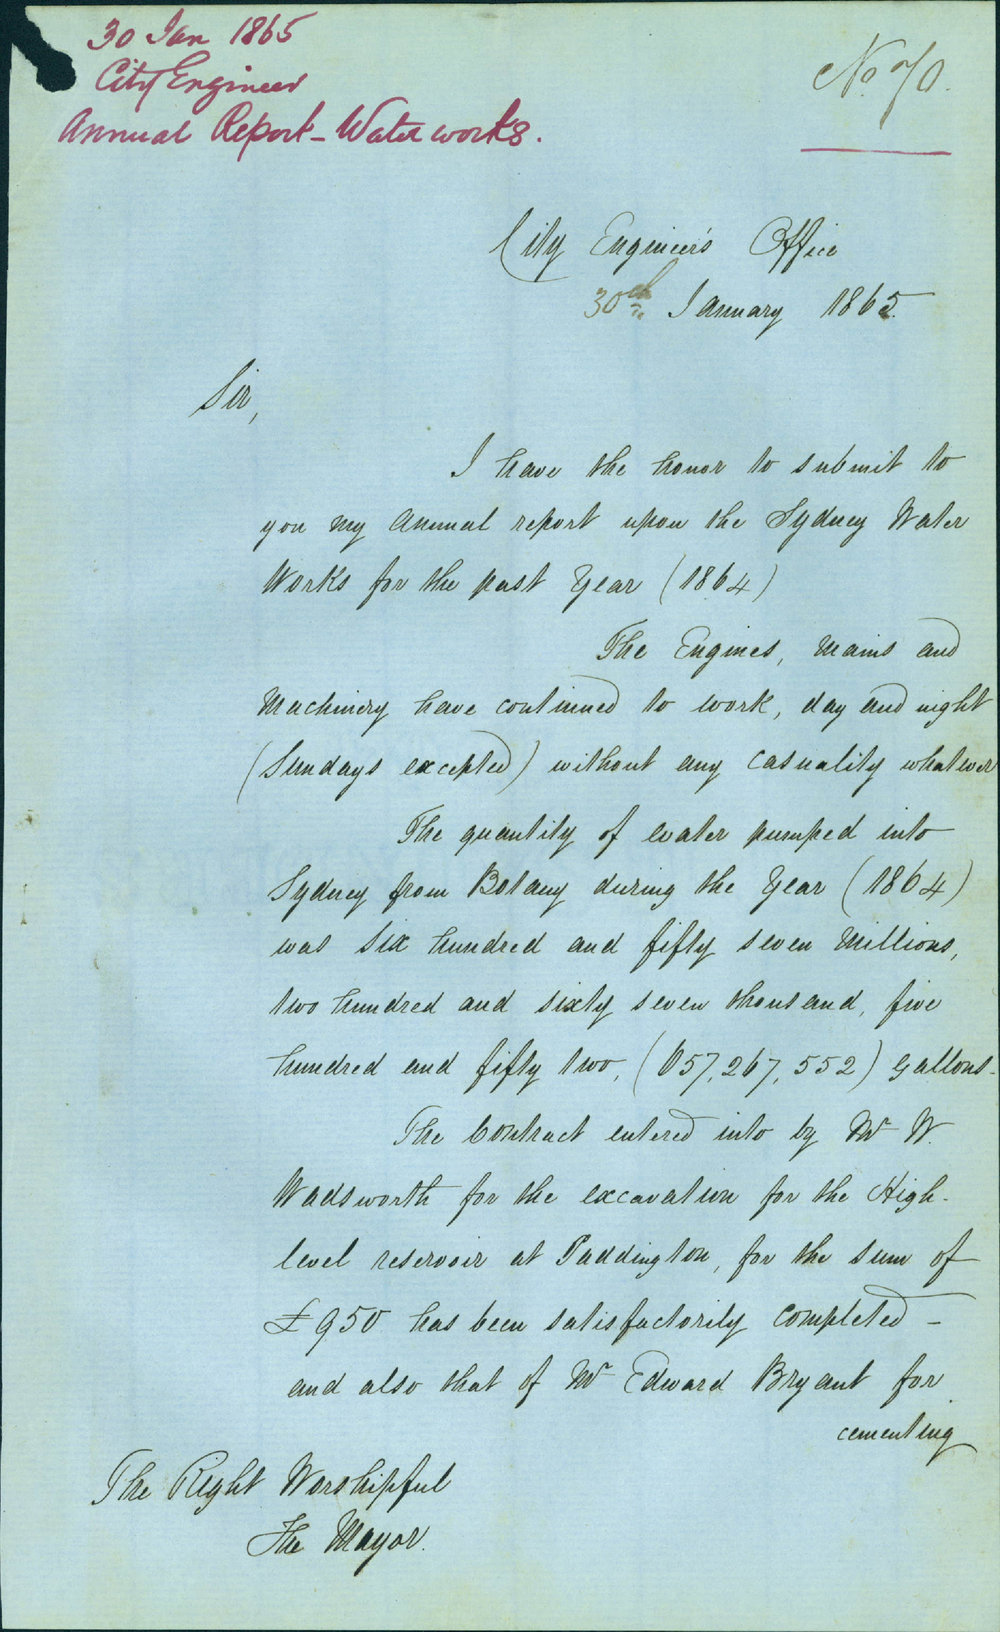 30 Jan 1865
City Engineer
Annual Report - Waterworks.
No 70.
City Engineer's Office
30th January 1865
Sir,
I have the honor to submit to
you my Annual report upon the Sydney Water
Works for the past Year (1864)
The Engines, Mains and
Machinery have continued to work, day and night
(Sundays excepted) without any casuality whatever
The quantity of water pumped into
Sydney from Botany during the Year (1864)
was Six hundred and fifty seven Millions,
two hundred and sixty seven thousand, five
hundred and fifty two, (657,267,552) Gallons-
The Contract entered into by Mr W.
Wadsworth for the excavation for the High-
level reservoir at Paddington, for the sum of
£950 has been satisfactorily completed -
and also that of Mr Edward Bryant for
cementing
The Right Worshipful
The Mayor.